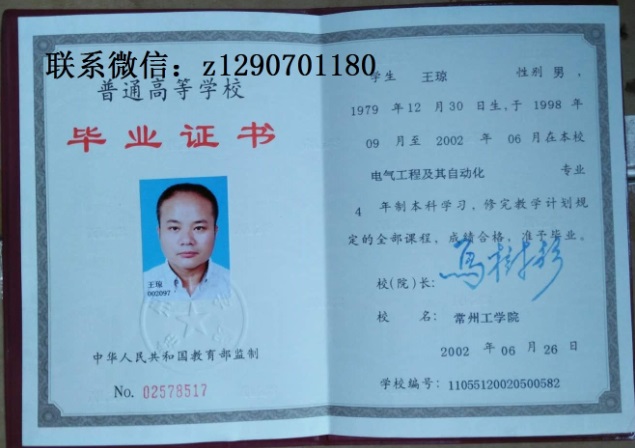 联系微信：z1290701180
普通高等学校
毕业证书
王琼
002097
中华人民共和国教育部监制
No. 02578517
学生 王琼 性别 男，
1979 年 12 月 30 日生，于 1998
年 09 月至 2002 年 06 月在本校
电气工程及其自动化 专业
4 年制本科学习，修完教学计划规
定的全部课程，成绩合格，准予毕业。
校（院）长：
校 名：常州工学院
2002 年 06 月 26 日
学校编号：11055120020500582